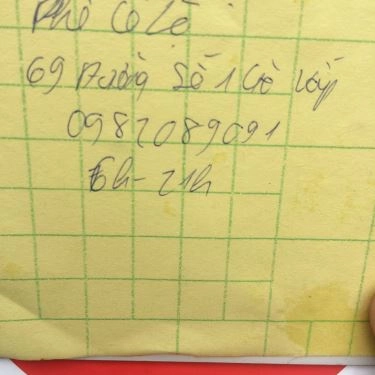 Phở Cô Lê
69 Đường Số 1 Gò Vấp
0982089091
6h - 21h